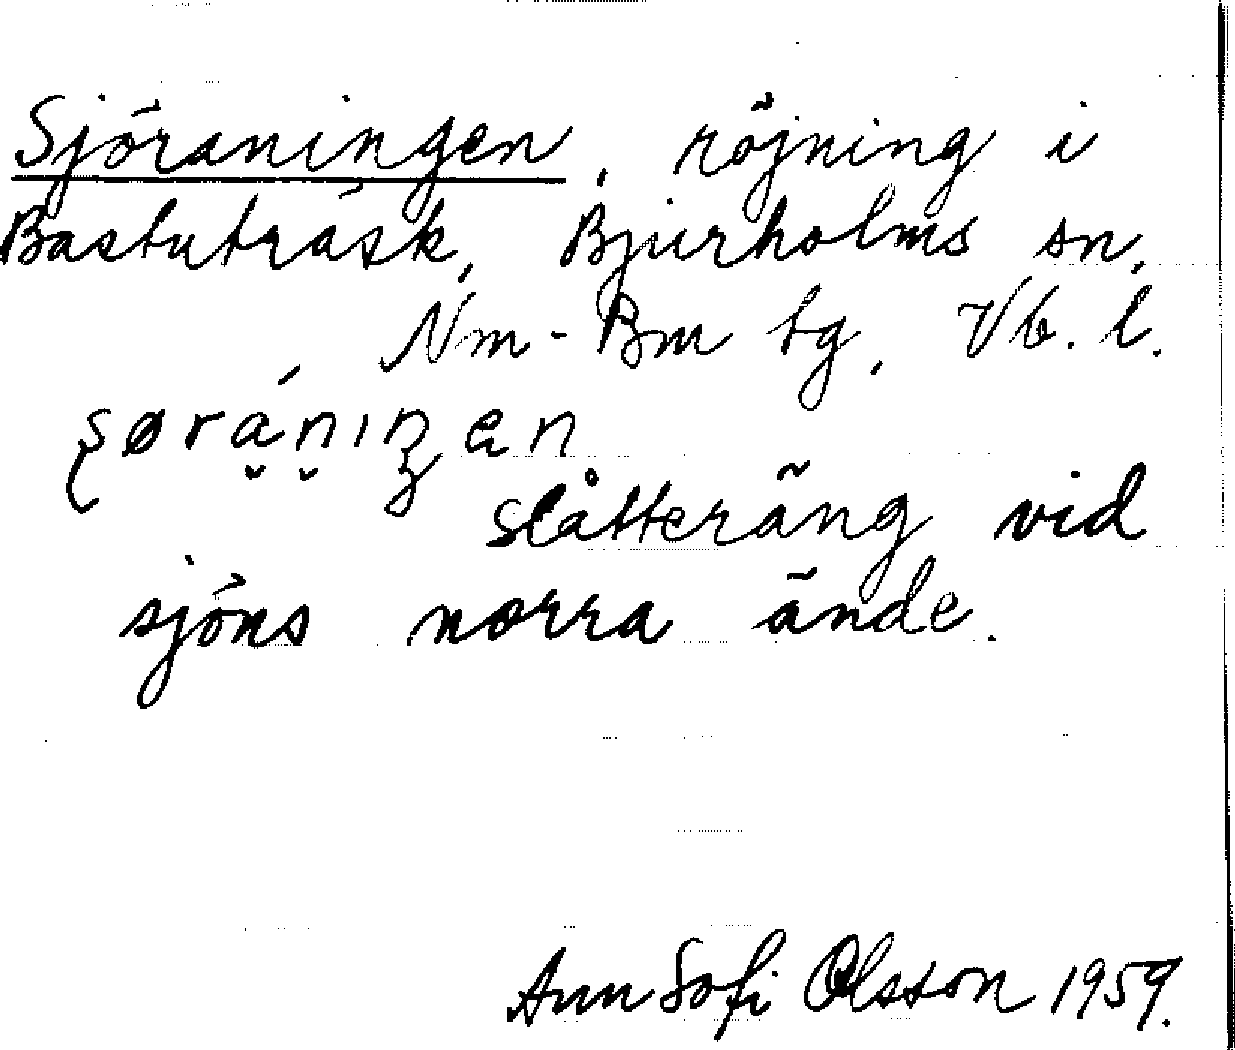 Sjöraningen, röjning i
Bastuträsk, Bjurholms sn,
Nm-Bm tg, Vb. l.
slåtteräng vid
sjöns norra ände.
Ann Sofi Olsson 1959.